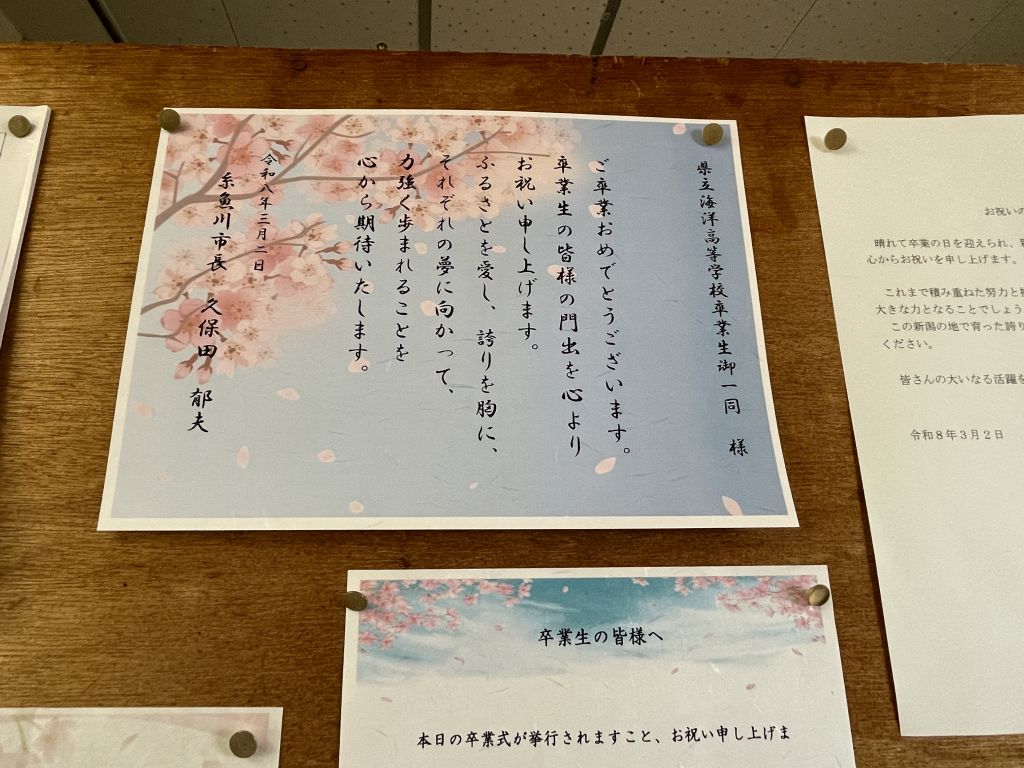 県立海洋高等学校卒業生御一同　様
ご卒業おめでとうございます。
卒業生の皆様の門出を心より
お祝い申し上げます。
ふるさとを愛し、誇りを胸に、
それぞれの夢に向かって、
力強く歩まれることを
心から期待いたします。
令和八年三月二日
糸魚川市長　久保田　郁夫
お祝いの
晴れて卒業の日を迎えられ、
心からお祝いを申し上げます。
これまで積み重ねた努力と
大きな力となることでしょう
この新潟の地で育った誇り
ください。
皆さんの大いなる活躍を
令和８年３月２日
卒業生の皆様へ
本日の卒業式が挙行されますこと、お祝い申し上げま